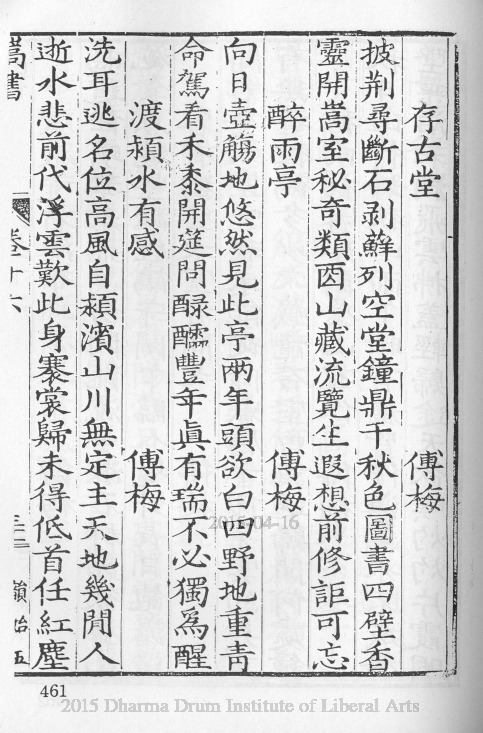 存古堂　傅梅
披荆尋斷石剥蘚列空堂鐘鼎千秋色圖書四壁香
靈開嵩室秘奇類酉山藏流覽生遐想前修詎可忘
醉雨亭　傅梅
向日壺觴地悠然見此亭兩年頭欲白四野地重青
命駕看禾黍開筵問醁醽豐年眞有瑞不必獨爲醒
渡潁水有感　傅梅
洗耳逃名位高風自潁濱山川無定主天地幾閒人
逝水悲前代浮雲歎此身褰裳歸未得低首任紅塵
嵩書　卷十六
2015-04-16
461
2015 Dharma Drum Institute of Liberal Arts